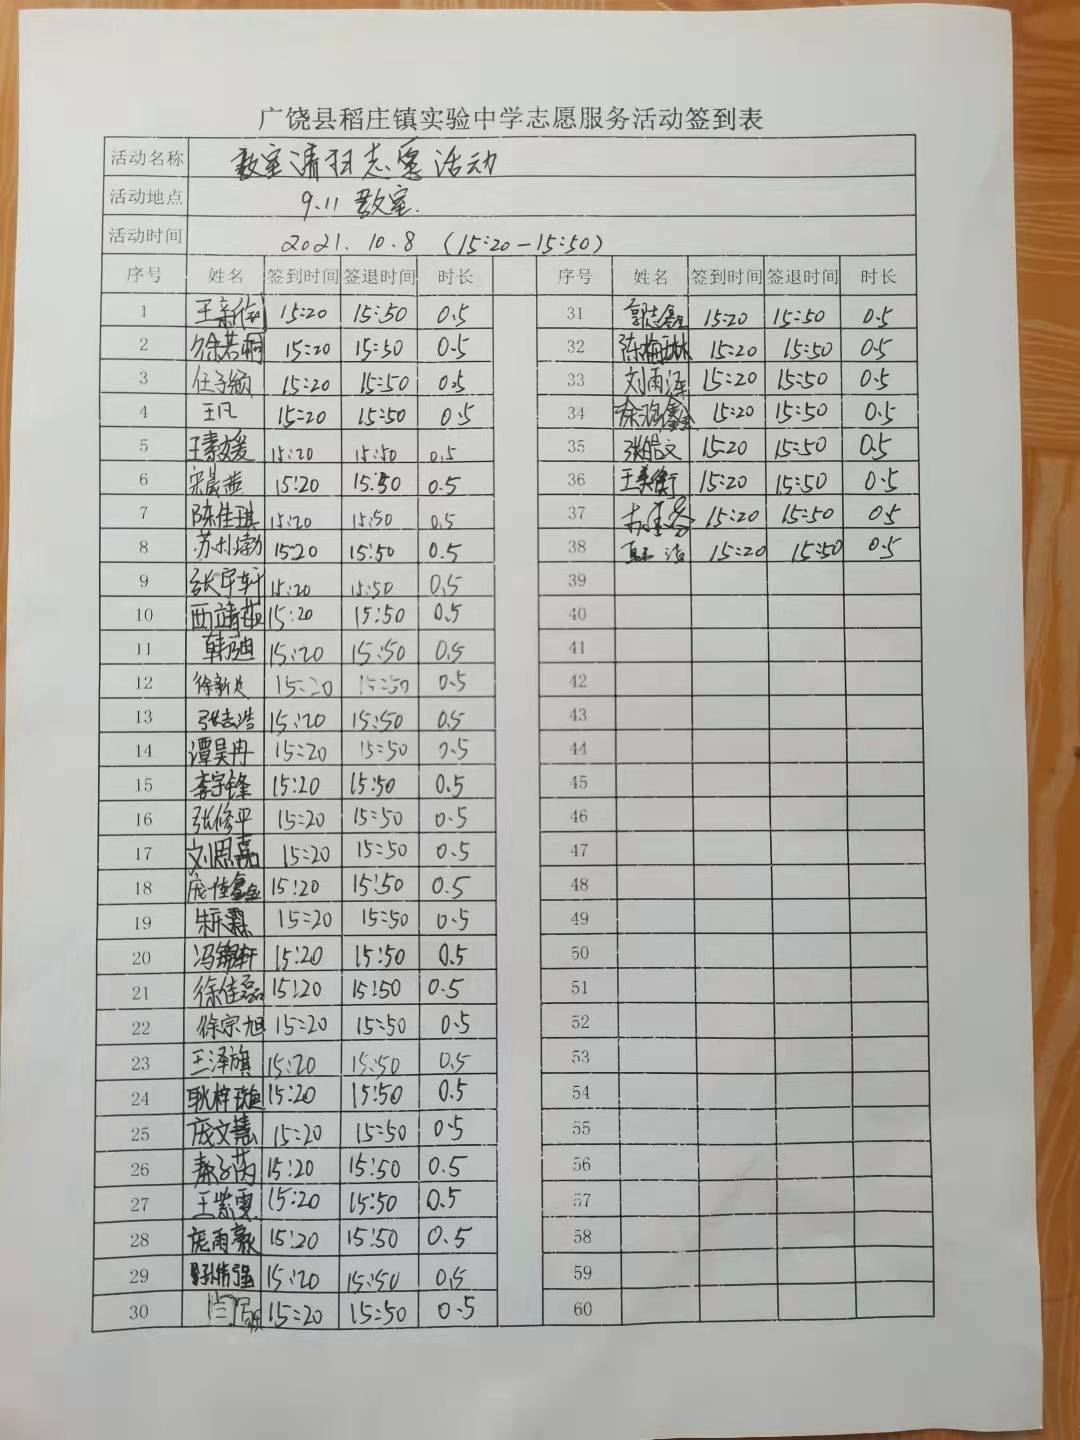 广饶县稻庄镇实验中学志愿服务活动签到表
活动名称 教室清扫志愿活动
活动地点 9.11 教室.
活动时间 2021.10.8 (15:20-15:50)
序号 姓名 签到时间 签退时间 时长 序号 姓名 签到时间 签退时间 时长
1 王新 15:20 15:50 0.5 31 郭志鑫 15:20 15:50 0.5
2 徐若桐 15:20 15:50 0.5 32 陈梅琳 15:20 15:50 0.5
3 任子颖 15:20 15:50 0.5 33 刘雨泽 15:20 15:50 0.5
4 王凡 15:20 15:50 0.5 34 徐鑫 15:20 15:50 0.5
5 王素媛 15:20 15:50 0.5 35 张皓文 15:20 15:50 0.5
6 宋晨燕 15:20 15:50 0.5 36 王美衡 15:20 15:50 0.5
7 陈佳琪 15:20 15:50 0.5 37 15:20 15:50 0.5
8 苏渤 15:20 15:50 0.5 38 15:20 15:50 0.5
9 张宇轩 15:20 15:50 0.5 39
10 西靖茹 15:20 15:50 0.5 40
11 韩迪 15:20 15:50 0.5 41
12 徐新 15:20 15:50 0.5 42
13 张志浩 15:20 15:50 0.5 43
14 谭昊冉 15:20 15:50 0.5 44
15 李宇锋 15:20 15:50 0.5 45
16 张修平 15:20 15:50 0.5 46
17 刘思嘉 15:20 15:50 0.5 47
18 庞佳鑫 15:20 15:50 0.5 48
19 15:20 15:50 0.5 49
20 冯锦轩 15:20 15:50 0.5 50
21 徐佳磊 15:20 15:50 0.5 51
22 徐宗旭 15:20 15:50 0.5 52
23 王泽旗 15:20 15:50 0.5 53
24 耿梓璇 15:20 15:50 0.5 54
25 庞文慧 15:20 15:50 0.5 55
26 秦子芮 15:20 15:50 0.5 56
27 王紫雯 15:20 15:50 0.5 57
28 庞雨豪 15:20 15:50 0.5 58
29 孙伟强 15:20 15:50 0.5 59
30 闫 15:20 15:50 0.5 60